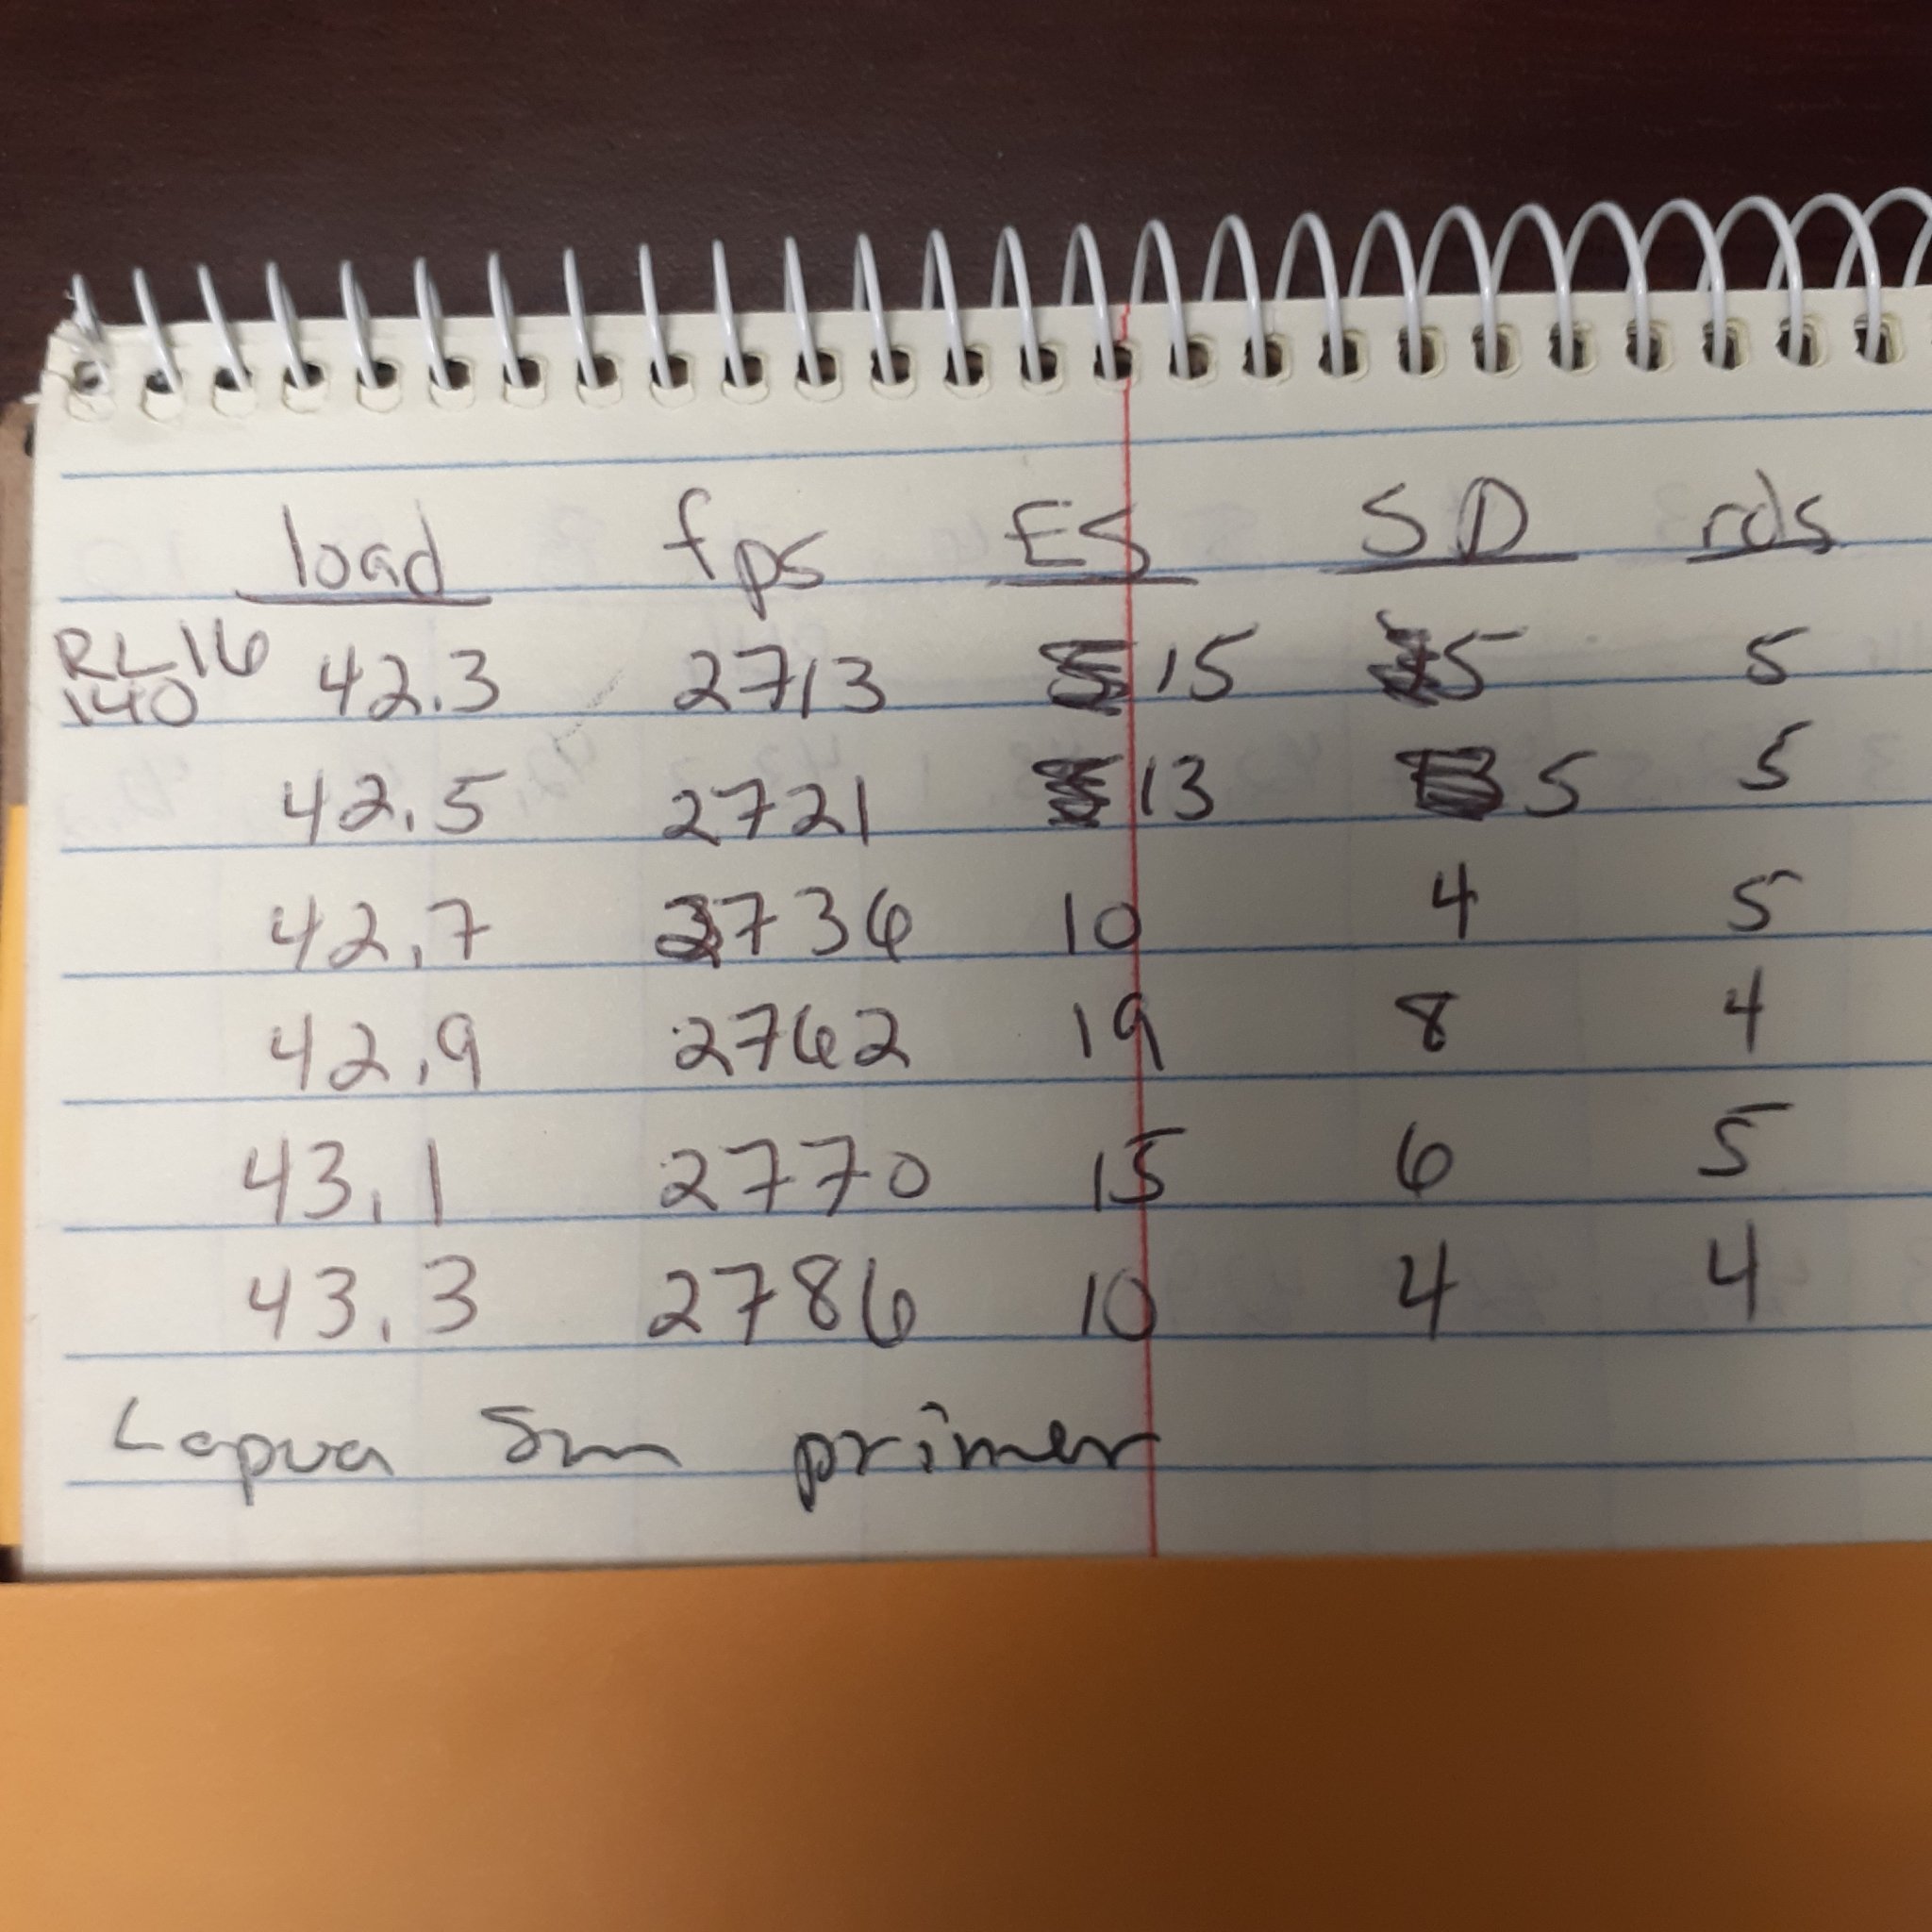 load fps ES SD rds
RL16 42.3 2713 15 5 5
140
42.5 2721 13 5 5
42.7 2736 10 4 5
42.9 2762 19 8 4
43.1 2770 15 6 5
43.3 2786 10 4 4
Lapua primer